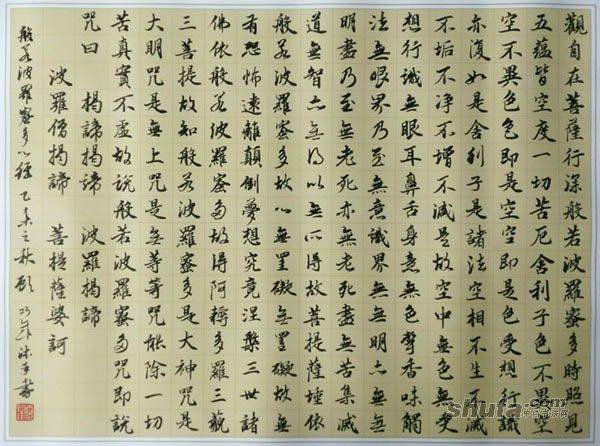 觀自在菩薩行深般若波羅蜜多時照見
五蘊皆空度一切苦厄舍利子色不異空
空不異色色即是空空即是色受想行識
亦復如是舍利子是諸法空相不生不滅
不垢不净不增不減是故空中無色無受
想行識無眼耳鼻舌身意無色聲香味觸
法無眼界乃至無意識界無無明亦無無
明盡乃至無老死亦無老死盡無苦集滅
道無智亦無得以無所得故菩提薩埵依
般若波羅蜜多故心無罣礙無罣礙故無
有恐怖遠離顛倒夢想究竟涅槃三世諸
佛依般若波羅蜜多故得阿耨多羅三藐
三菩提故知般若波羅蜜多是大神咒是
大明咒是無上咒是無等等咒能除一切
苦真實不虛故說般若波羅蜜多咒即說
咒曰 揭諦揭諦 波羅揭諦
波羅僧揭諦 菩提薩婆訶
般若波羅蜜多心經 乙未之秋 書
shufa.com